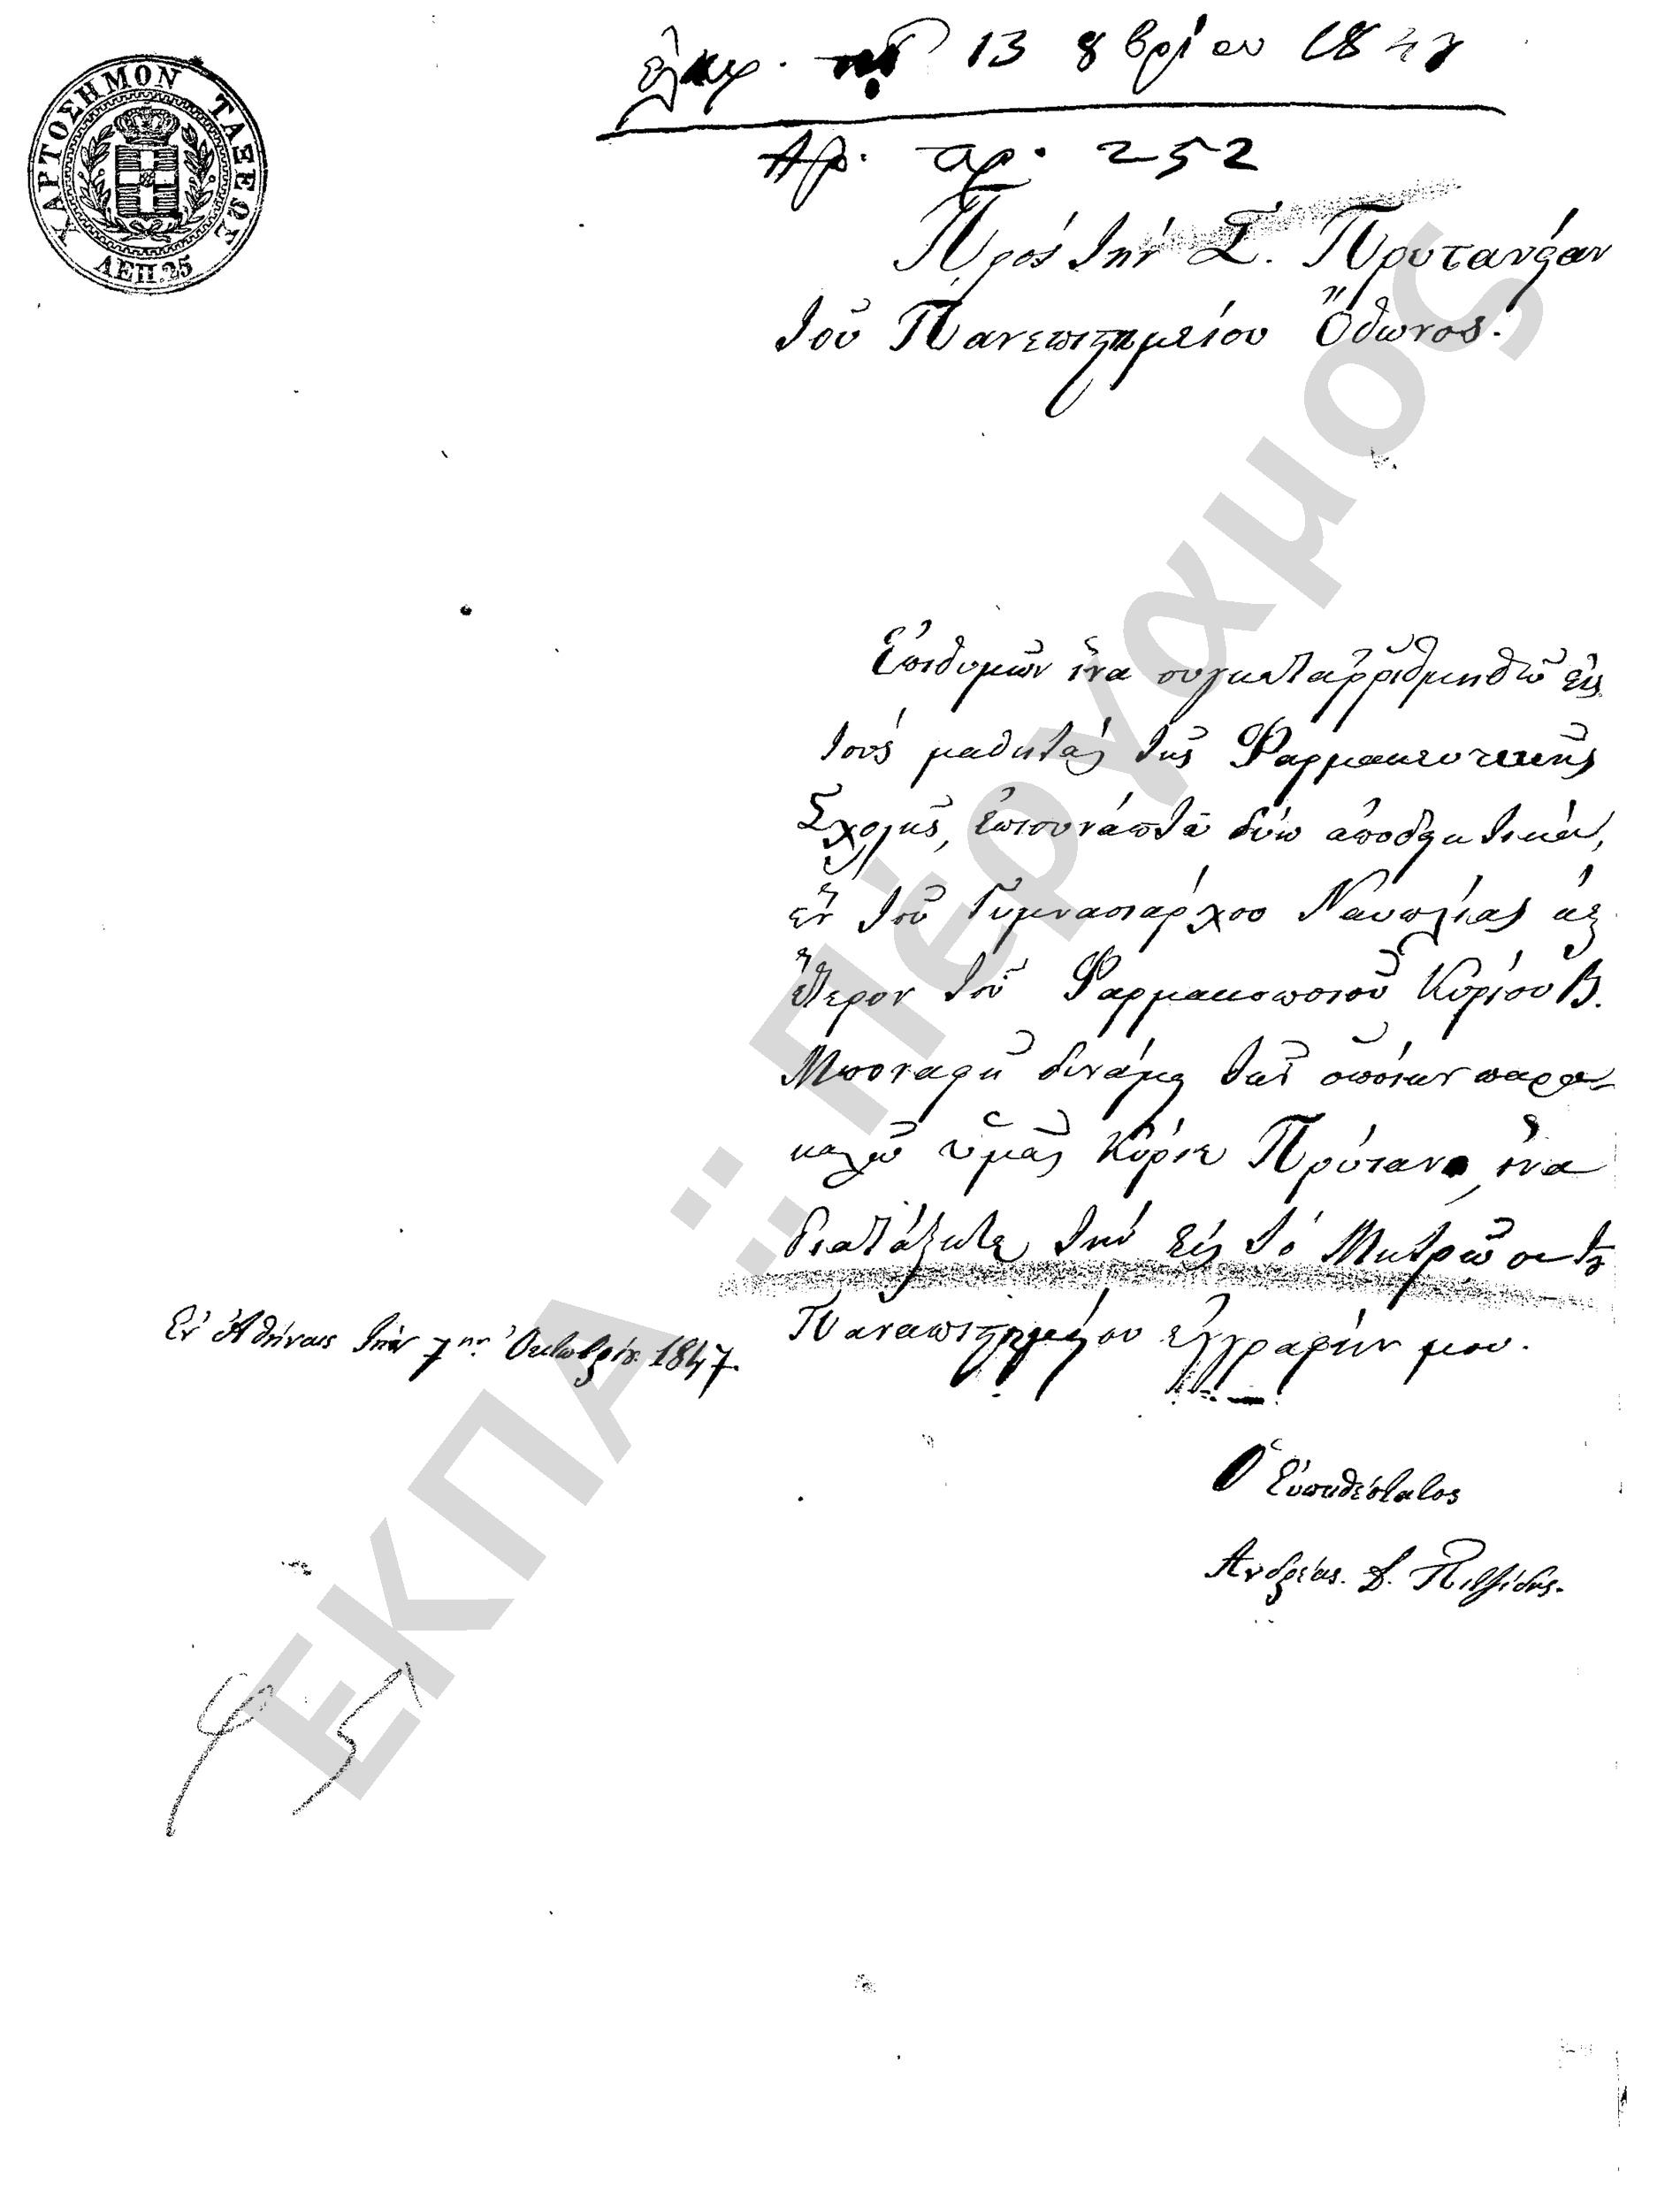 ΧΑΡΤΟΣΗΜΟΝ ΤΑΞΕΩΣ
ΛΕΠ. 25
13 8βρίου 1847
Ἀρ. πρ. 252
Πρός τήν Σ. Πρυτανείαν
τοῦ Πανεπιστημείου Ὄθωνος.
Ἐπιθυμῶν ἵνα συγκαταῤῥιθμηθῶ εἰς
τούς μαθητάς τῆς Φαρμακευτικῆς
Σχολῆς, ἐπισυνάπτω δύω ἀποδεικτικά,
ἕν τοῦ Γυμνασιάρχου Ναυπλίας καί
ἕτερον τοῦ Φαρμακοποιοῦ Κυρίου Β.
Μποναφῆ δυνάμει τῶν ὁποίων παρα-
καλῶ ὑμᾶς Κύριε Πρύτανι, ἵνα
διατάξητε τήν εἰς τό Μητρῶον τοῦ
Πανεπιστημείου ἐγγραφήν μου.
Ἐν Ἀθήναις τήν 7ην Ὀκτωβρίου 1847.
Ὁ Εὐπειθέστατος
Ἀνδρέας. Δ. Πιτζίδης.
ΕΚΠΑ :: Πέργαμος